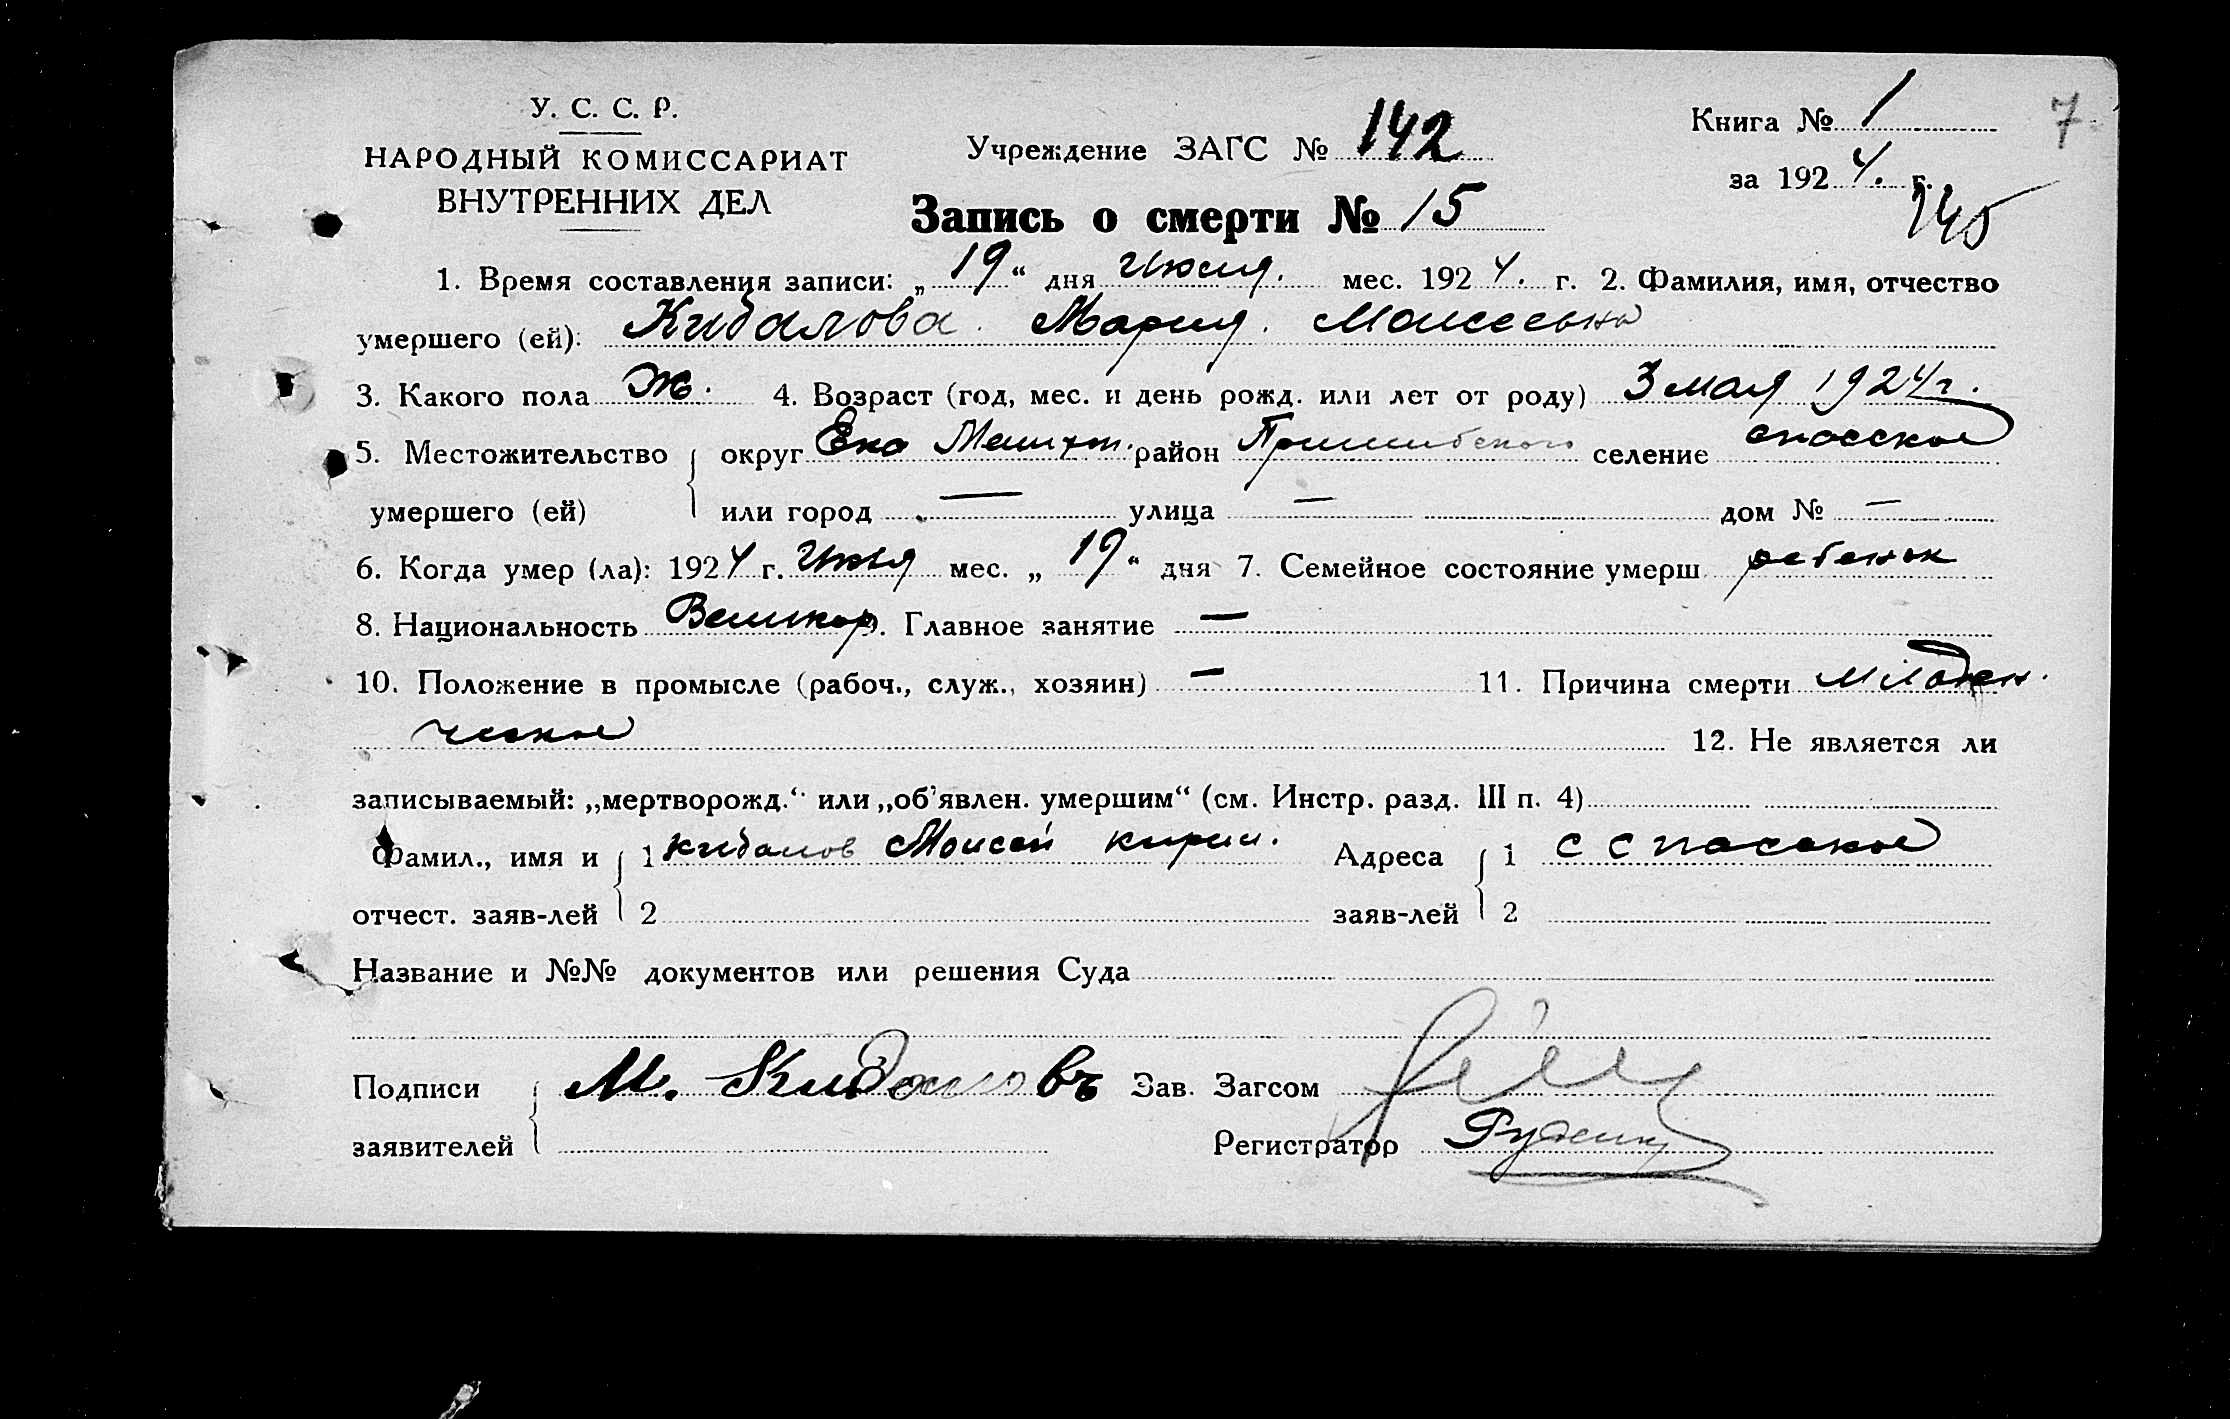 У. С. С. Р.
НАРОДНЫЙ КОМИССАРИАТ
ВНУТРЕННИХ ДЕЛ
Учреждение ЗАГС № 142
Книга № 1
7
за 1924. г.
145
Запись о смерти № 15
1. Время составления записи: „19“ дня Июля. мес. 1924. г. 2. Фамилия, имя, отчество
умершего (ей): Кидалова. Мария. Моисеевна
3. Какого пола Ж. 4. Возраст (год, мес. и день рожд. или лет от роду) 3 мая 1924 г.
5. Местожительство округ район Пришибского селение спасское
умершего (ей) или город — улица — дом № —
6. Когда умер (ла): 1924 г. Июля мес. „19“ дня 7. Семейное состояние умерш. ребенок
8. Национальность Великор. Главное занятие —
10. Положение в промысле (рабоч., служ., хозяин) — 11. Причина смерти младен.
ческое
12. Не является ли
записываемый: „мертворожд.“ или „об'явлен. умершим“ (см. Инстр. разд. III п. 4)
Фамил., имя и 1 Кидалов Моисей кирил. Адреса 1 с спасское
отчест. заяв-лей 2 заяв-лей 2
Название и №№ документов или решения Суда
Подписи М. Кидаловъ Зав. Загсом
заявителей Регистратор